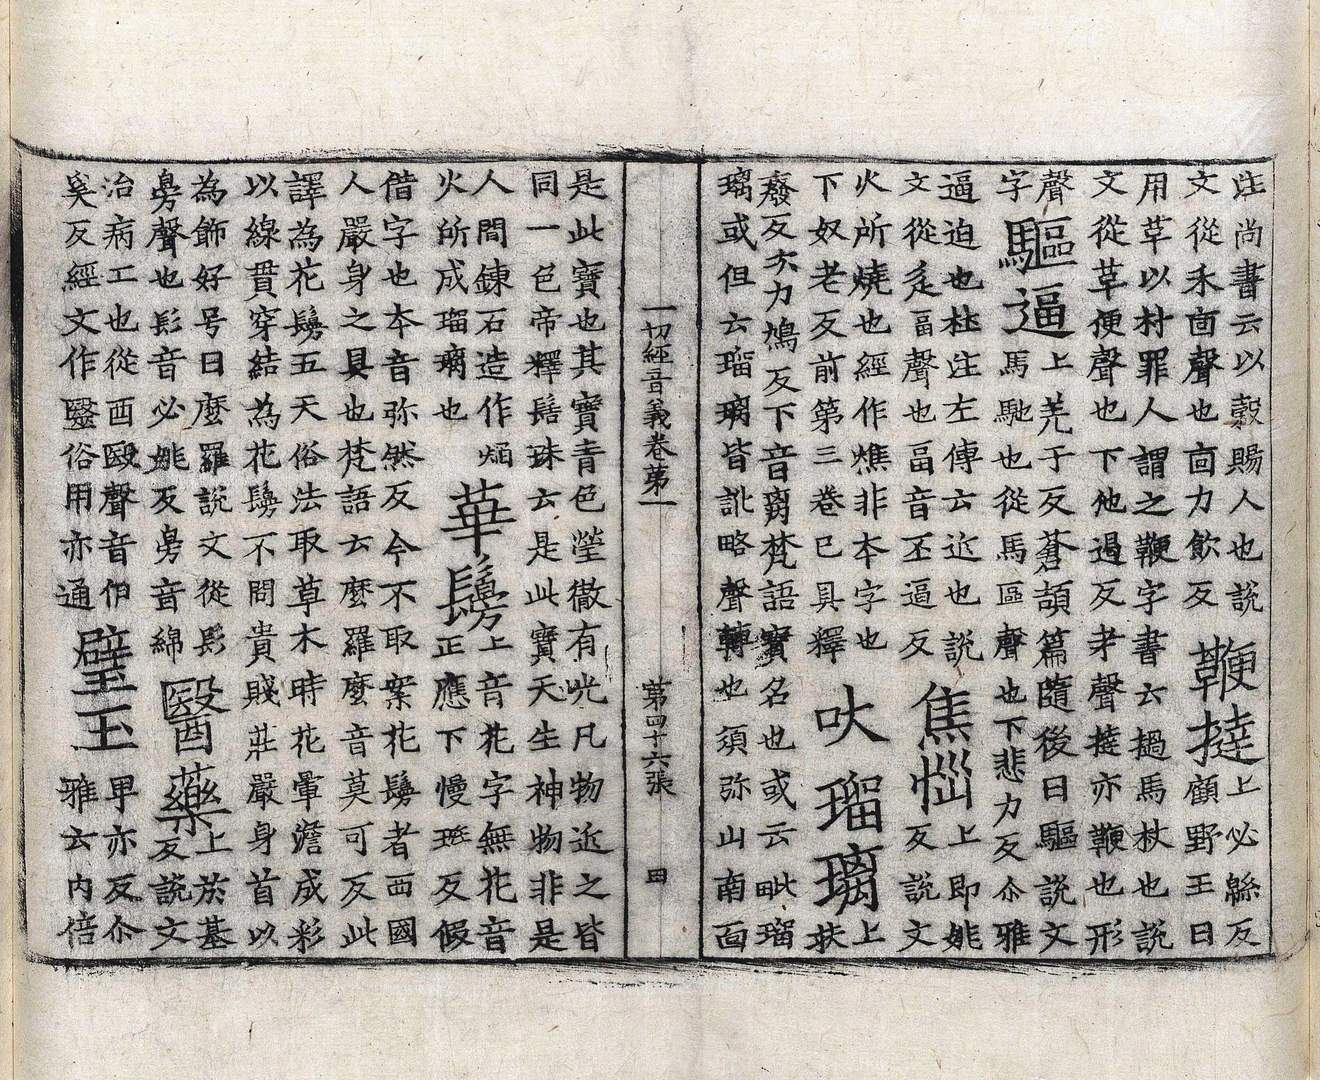 注尚書云以穀賜人也說
文從禾㐭聲也㐭力飲反
鞭撻
上必緜反
顧野王曰
用草以村罪人謂之鞭字書云撾馬杖也說
文從草便聲也下他過反才聲撻亦鞭也形
聲
字
驅逼
上羌于反蒼頡篇隨後曰驅說文
馬馳也從馬區聲也下悲力反尒雅
逼迫也杜注左傳云近也說
文從辵畐聲也畐音丕逼反
焦惱
上即姚
反說文
火所燒也經作燋非本字也
下奴老反前第三卷已具釋
吠瑠璃
上
扶
廢反次力鳩反下音离梵語寶名也或云毗瑠
璃或但云瑠璃皆訛略聲轉也須弥山南面
一切經音義卷第一 第四十六張 田
是此寶也其寶青色瑩徹有光凡物近之皆
同一色帝釋髻珠云是此寶天生神物非是
人間鍊石造作焰
火所成瑠璃也
華鬘
上音花字無花音
正應下慢班反假
借字也本音弥然反今不取案花鬘者西國
人嚴身之具也梵語云麼羅麼音莫可反此
譯為花鬘五天俗法取草木時花暈澹成彩
以線貫穿結為花鬘不問貴賤莊嚴身首以
為飾好号曰麼羅說文從髟
㝱聲也髟音必姚反㝱音綿
醫藥
上於基
反說文
治病工也從酉殹聲音伯
奚反經文作毉俗用亦通
璧玉
甲亦反尒
雅云内倍